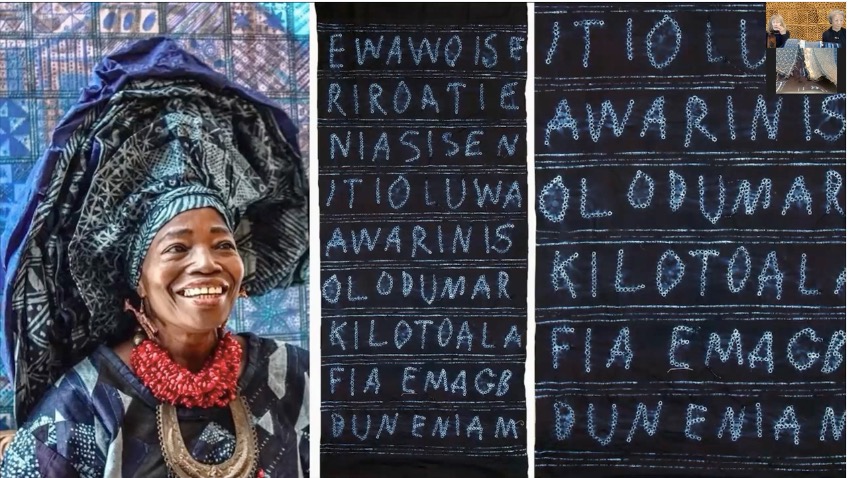 EWAWOISE
RIROATIE
NIASISEN
ITIOLUWA
AWARINIS
OLODUMAR
KILOTOALA
FIA EMAGB
DUN ENIAM
ITIOLU
AWARINIS
OLODUMAR
KILOTOALA
FIA EMAGB
DUN ENIAM